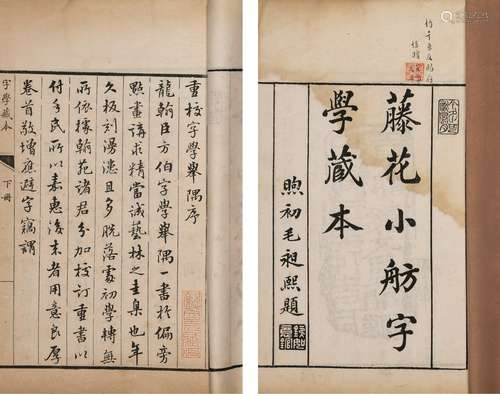 藤花小舫字
學藏本
煦初毛昶熙題
重校字學舉隅序
龍翰臣方伯字學舉隅一書於偏旁
點畫講求精當誠藝林之圭臬也年
久板刻漫漶且多脫落處初學轉無
所依據翰苑諸君分加校訂重書以
付手民所以嘉惠後来者用意良厚
卷首敬增應避字竊謂
字學藏本
下冊